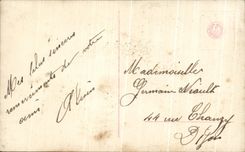 Mes plus sincères
remerciements de votre
amie
Mademoiselle
Germain
44 rue Chanzy
Dijon